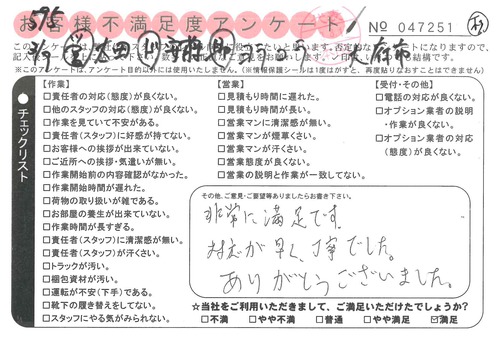 595
お客様不満足度アンケート
No 047251
【作業】
□責任者の対応(態度)が良くない。
□他のスタッフの対応(態度)が良くない。
□作業を見ていて不安がある。
□責任者(スタッフ)に好感が持てない。
□お客様への挨拶が出来ていない。
□ご近所への挨拶・気遣いが無い。
□作業開始前の内容確認がなかった。
□作業開始時間が遅れた。
□荷物の取り扱いが雑である。
□お部屋の養生が出来ていない。
□作業時間が長すぎる。
□責任者(スタッフ)に清潔感が無い。
□責任者(スタッフ)が汗くさい。
□トラックが汚い。
□梱包資材が汚い。
□運転が不安(下手)である。
□靴下の履き替えをしてない。
□スタッフにやる気がみられない。
【営業】
□見積もり時間に遅れた。
□見積もり時間が長い。
□営業マンに清潔感が無い。
□営業マンが煙草くさい。
□営業マンが汗くさい。
□営業態度が良くない。
□営業の説明と作業が一致してない。
【受付・その他】
□電話の対応が良くない。
□オプション業者の説明
・作業が良くない。
□オプション業者の対応
(態度)が良くない。
チェックリスト
その他、ご意見・ご要望等ありましたらお書き下さい。
非常に満足です。
対応が早く、丁寧でした。
ありがとうございました。
☆当社をご利用いただきまして、ご満足いただけたでしょうか?
□不満 □やや不満 □普通 □やや満足 ☑満足